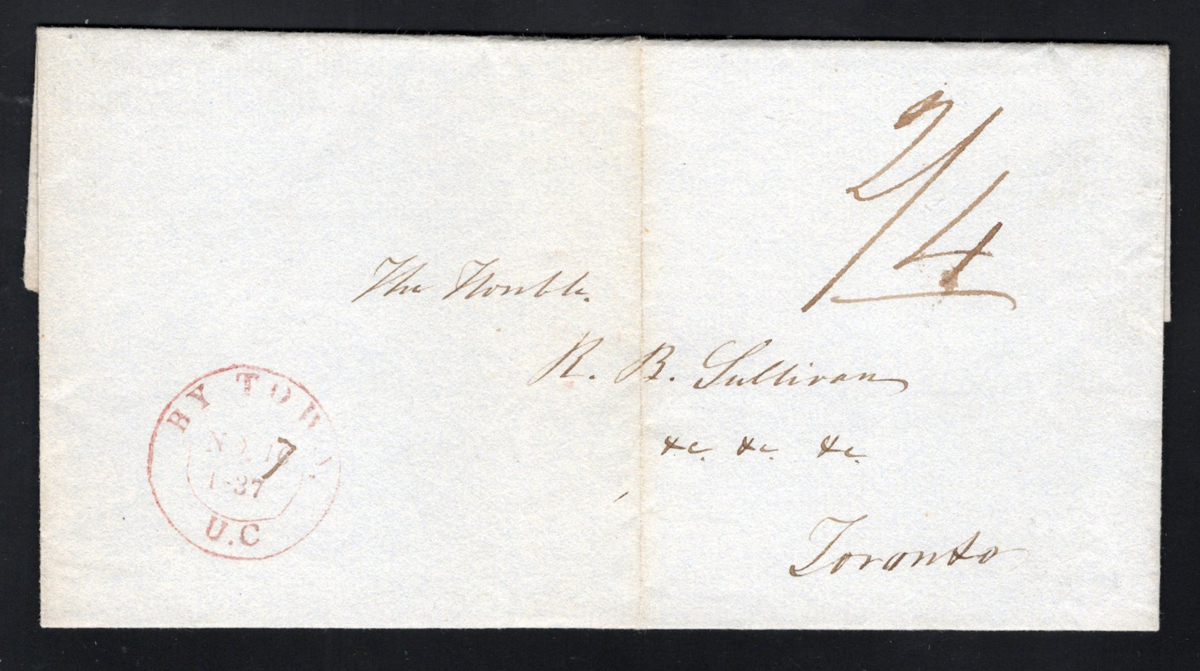 2/4
The Honble.
R. B. Sullivan
&c. &c. &c.
Toronto
BY TOWN
7
1837
U.C